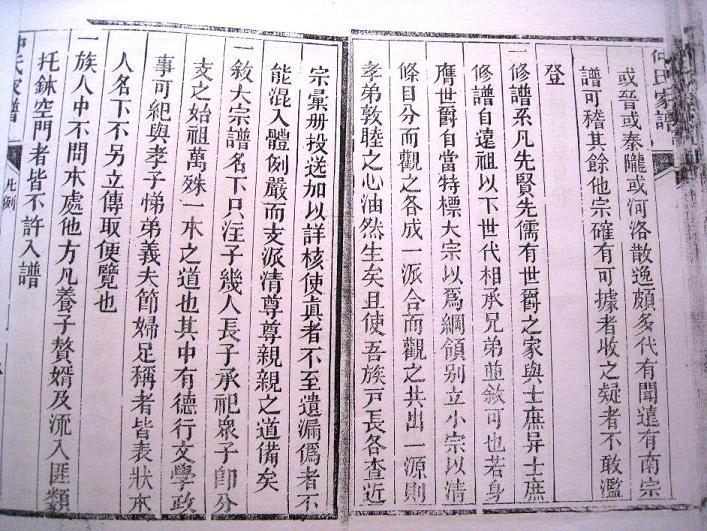 仲氏家譜
或晉或秦隴或河洛散逸頗多代有聞達有南宗
譜可稽其餘他宗確有可據者收之疑者不敢濫
登
一修譜系凡先賢先儒有世爵之家與士庶异士庶
修譜自遠祖以下世代相承兄弟並敘可也若身
膺世爵自當特標大宗以爲綱領别立小宗以清
條目分而觀之各成一派合而觀之共出一源則
孝弟敦睦之心油然生矣且使吾族戸長各查近
宗彙册投送加以詳核使眞者不至遺漏僞者不
能混入體例嚴而支派清尊尊親親之道備矣
一敘大宗譜名下只注子幾人長子承祀衆子卽分
支之始祖萬殊一本之道也其中有德行文學政
事可紀與孝子悌弟義夫節婦足稱者皆表狀本
人名下不另立傳取便覽也
一族人中不問本處他方凡養子贅婿及流入匪類
托鉢空門者皆不許入譜
仲氏家譜
凡例